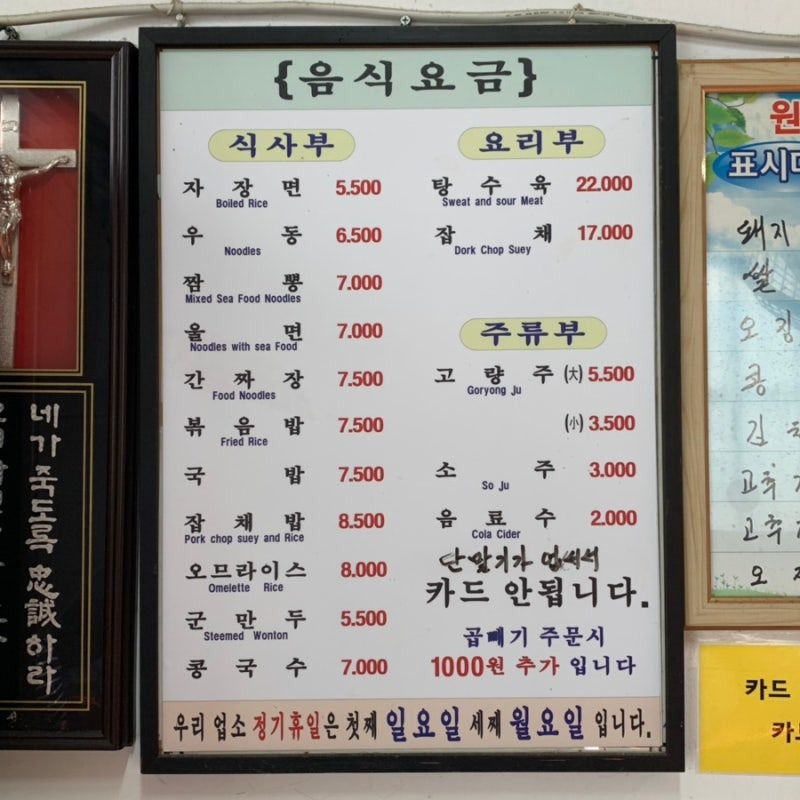 {음식요금}
식사부
자장면 5.500
Boiled Rice
우동 6.500
Noodles
짬뽕 7.000
Mixed Sea Food Noodles
울면 7.000
Noodles with sea Food
간짜장 7.500
Food Noodles
볶음밥 7.500
Fried Rice
국밥 7.500
잡채밥 8.500
Pork chop suey and Rice
오므라이스 8.000
Omelette Rice
군만두 5.500
Steemed Wonton
콩국수 7.000
요리부
탕수육 22.000
Sweat and sour Meat
잡채 17.000
Dork Chop Suey
주류부
고량주 (大) 5.500
Goryong Ju
(小) 3.500
소주 3.000
So Ju
음료수 2.000
Cola Cider
단말기가 없어서
카드 안됩니다.
곱빼기 주문시
1000원 추가 입니다
우리 업소 정기휴일은 첫째 일요일 세째 월요일 입니다.
네가 죽도록 忠誠하라
원
表시
돼지
쌀
오징
콩
김
고추
고추
오
카드
카